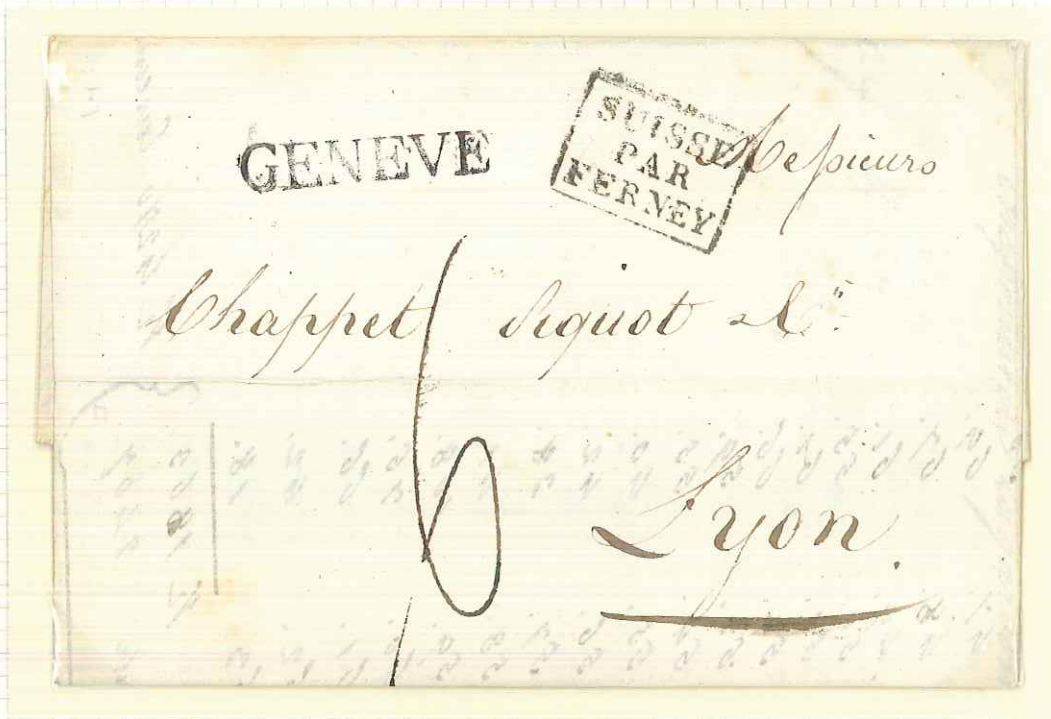 GENEVE
SUISSE
PAR
FERNEY
Messieurs
Chappet Siguot & C.ie
6
Lyon